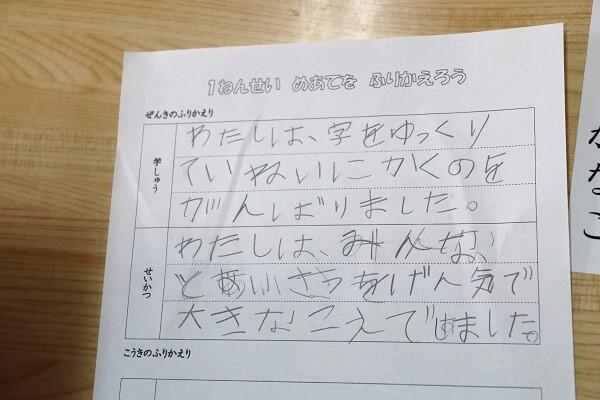 1ねんせい めあてを ふりかえろう
ぜんきのふりかえり
学しゅう
わたしは、字をゆっくり
ていねいにかくのを
がんばりました。
せいかつ
わたしは、みんな
とあいさつをげん気で
大きなこえでしました。
こうきのふりかえり
かなこ